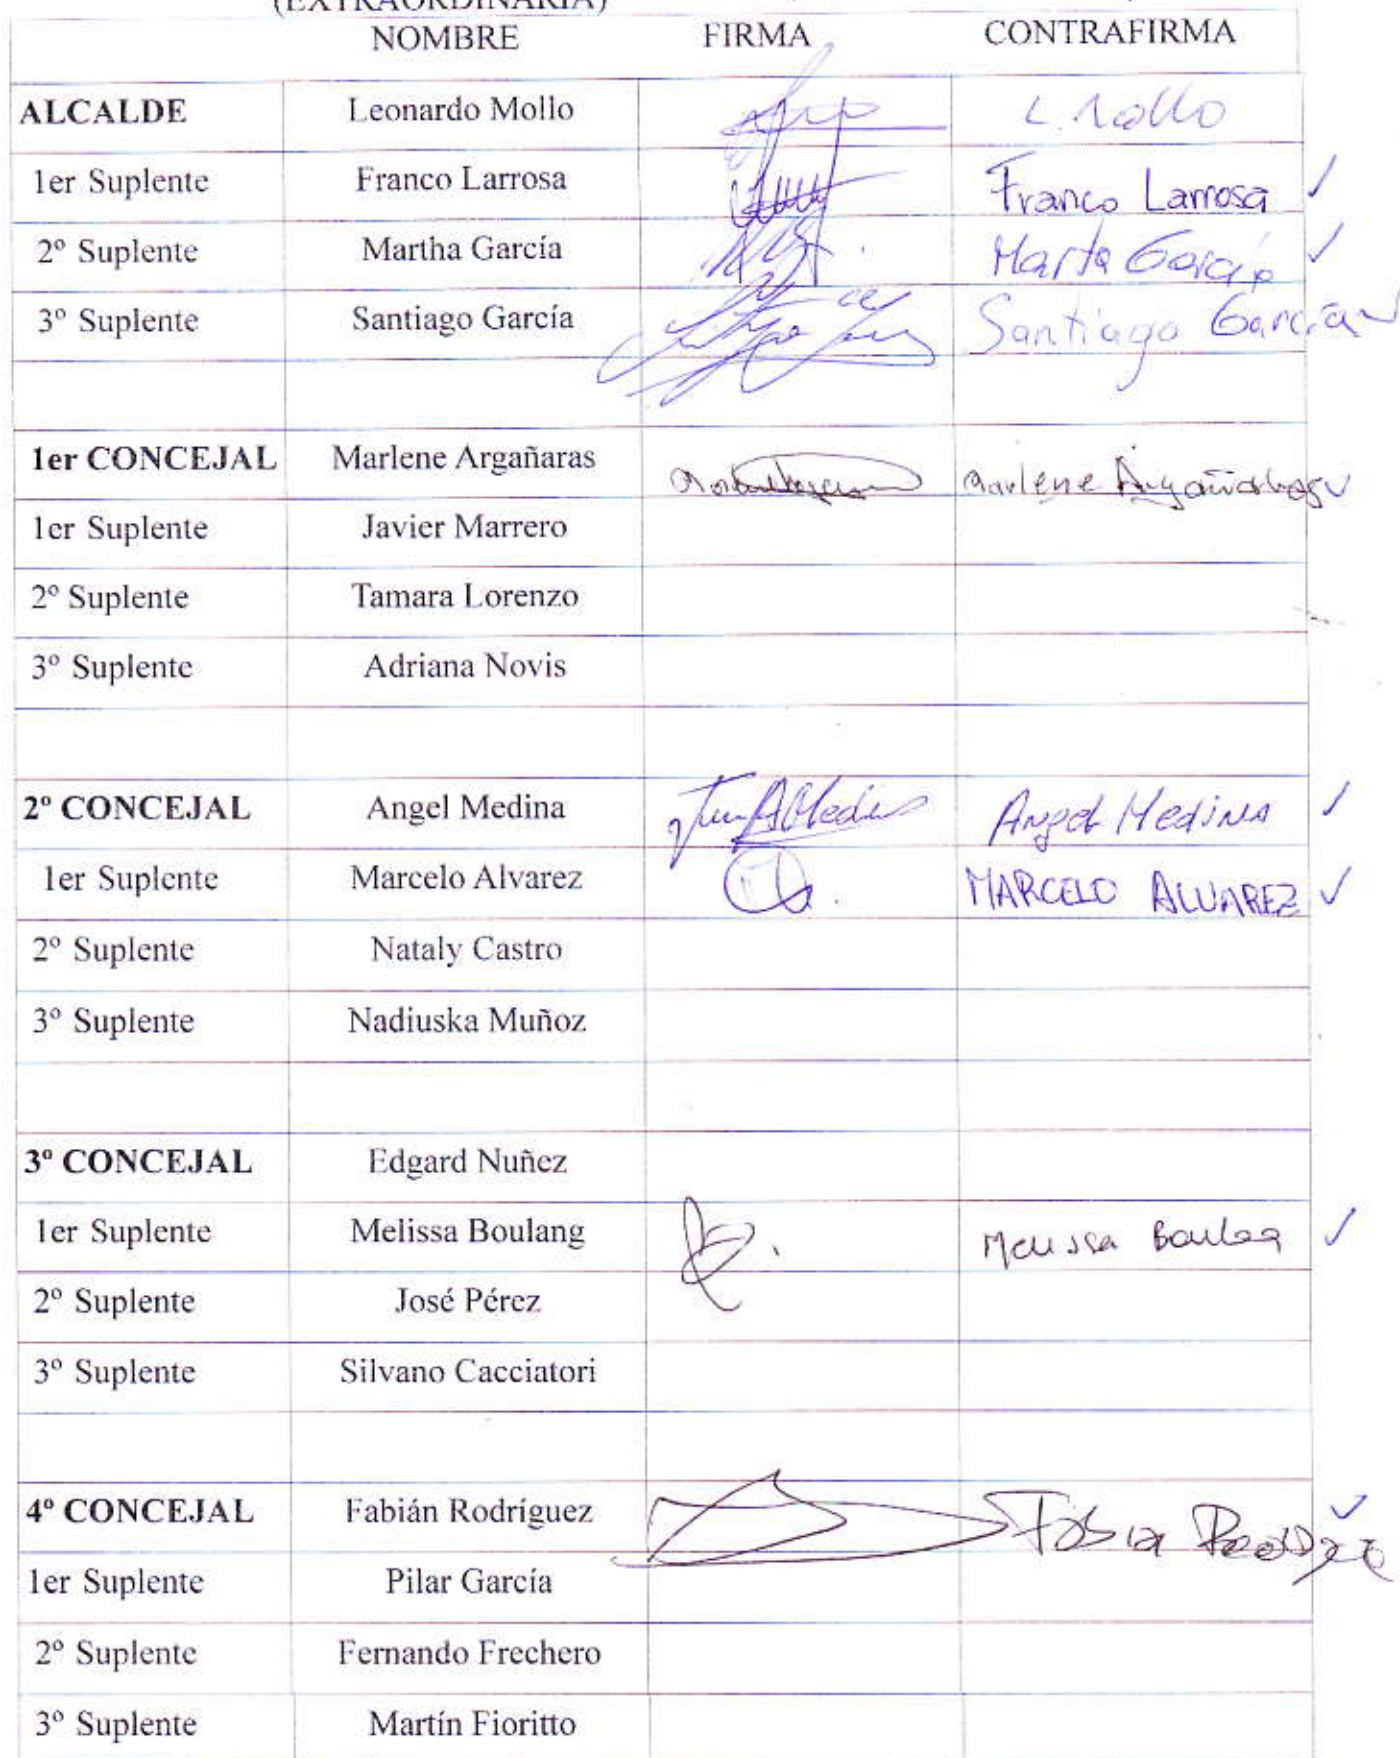 (EXTRAORDINARIA)
NOMBRE FIRMA CONTRAFIRMA
ALCALDE Leonardo Mollo L. Mollo
1er Suplente Franco Larrosa Franco Larrosa ✓
2º Suplente Martha García Marta García ✓
3º Suplente Santiago García Santiago García ✓
1er CONCEJAL Marlene Argañaras Marlene Argañaras ✓
1er Suplente Javier Marrero
2º Suplente Tamara Lorenzo
3º Suplente Adriana Novis
2º CONCEJAL Angel Medina Angel Medina ✓
1er Suplente Marcelo Alvarez MARCELO ALVAREZ ✓
2º Suplente Nataly Castro
3º Suplente Nadiuska Muñoz
3º CONCEJAL Edgard Nuñez
1er Suplente Melissa Boulang Melissa ✓
2º Suplente José Pérez
3º Suplente Silvano Cacciatori
4º CONCEJAL Fabián Rodríguez ✓
1er Suplente Pilar García
2º Suplente Fernando Frechero
3º Suplente Martín Fioritto